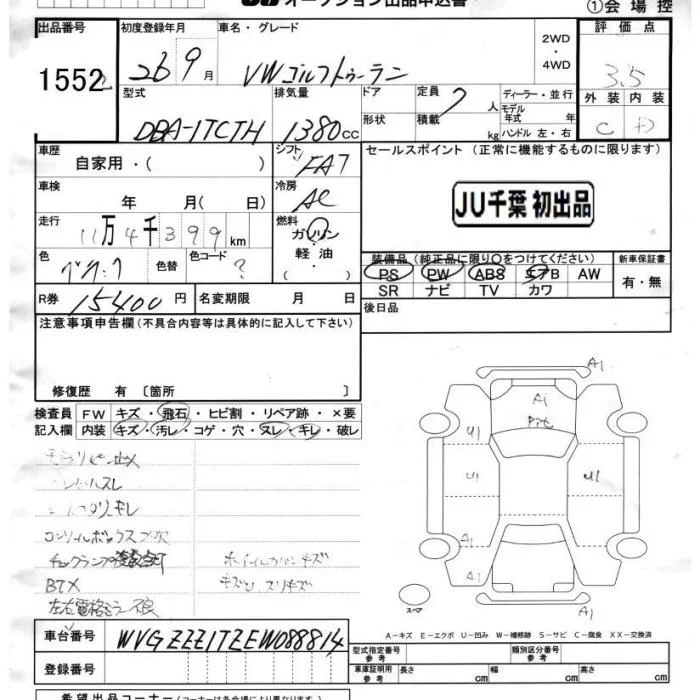 オークション出品申込書
①会場控
出品番号 初度登録年月 車名・グレード 2WD・4WD 評価点
1552 26 9月 VWゴルフトゥーラン 3.5
型式 排気量 ドア 定員 7人 ディーラー・並行 外装 内装
モデル年式 年
DBA-1TCTH 1380cc 形状 積載 kg ハンドル 左・右 C D
車歴 シフト セールスポイント (正常に機能するものに限ります)
自家用・( ) FA7
車検 冷房 JU千葉 初出品
年 月( 日) AC
走行 燃料
11万4千399km ガソリン
色 色替 色コード 軽油 装備品(純正品に限り○をつけてください) 新車保証書
? ・( ) PS PW ABS エアB AW 有・無
SR ナビ TV カワ
R券 15400円 名変期限 月 日 後日品
注意事項申告欄(不具合内容等は具体的に記入して下さい)
修復歴 有 〔箇所 〕
検査員 FW キズ・飛石・ヒビ割・リペア跡・×要
記入欄 内装 キズ・汚レ・コゲ・穴・スレ・キレ・破レ
A1
A1
U1
U1 U1
A1
A1
A1
コンソールボックス
チェックランプ
BTX
左右電格ミラー不良
スペア
A-キズ E-エクボ U-凹み W-補修跡 S-サビ C-腐食 XX-交換済
車台番号 WVGZZZ1TZEW088814 型式指定番号 参考 類別区分番号 参考
登録番号 車庫証明用 参考 長さ cm 幅 cm 高さ cm
希望出品コーナー(コーナーは各会場により異なります。)